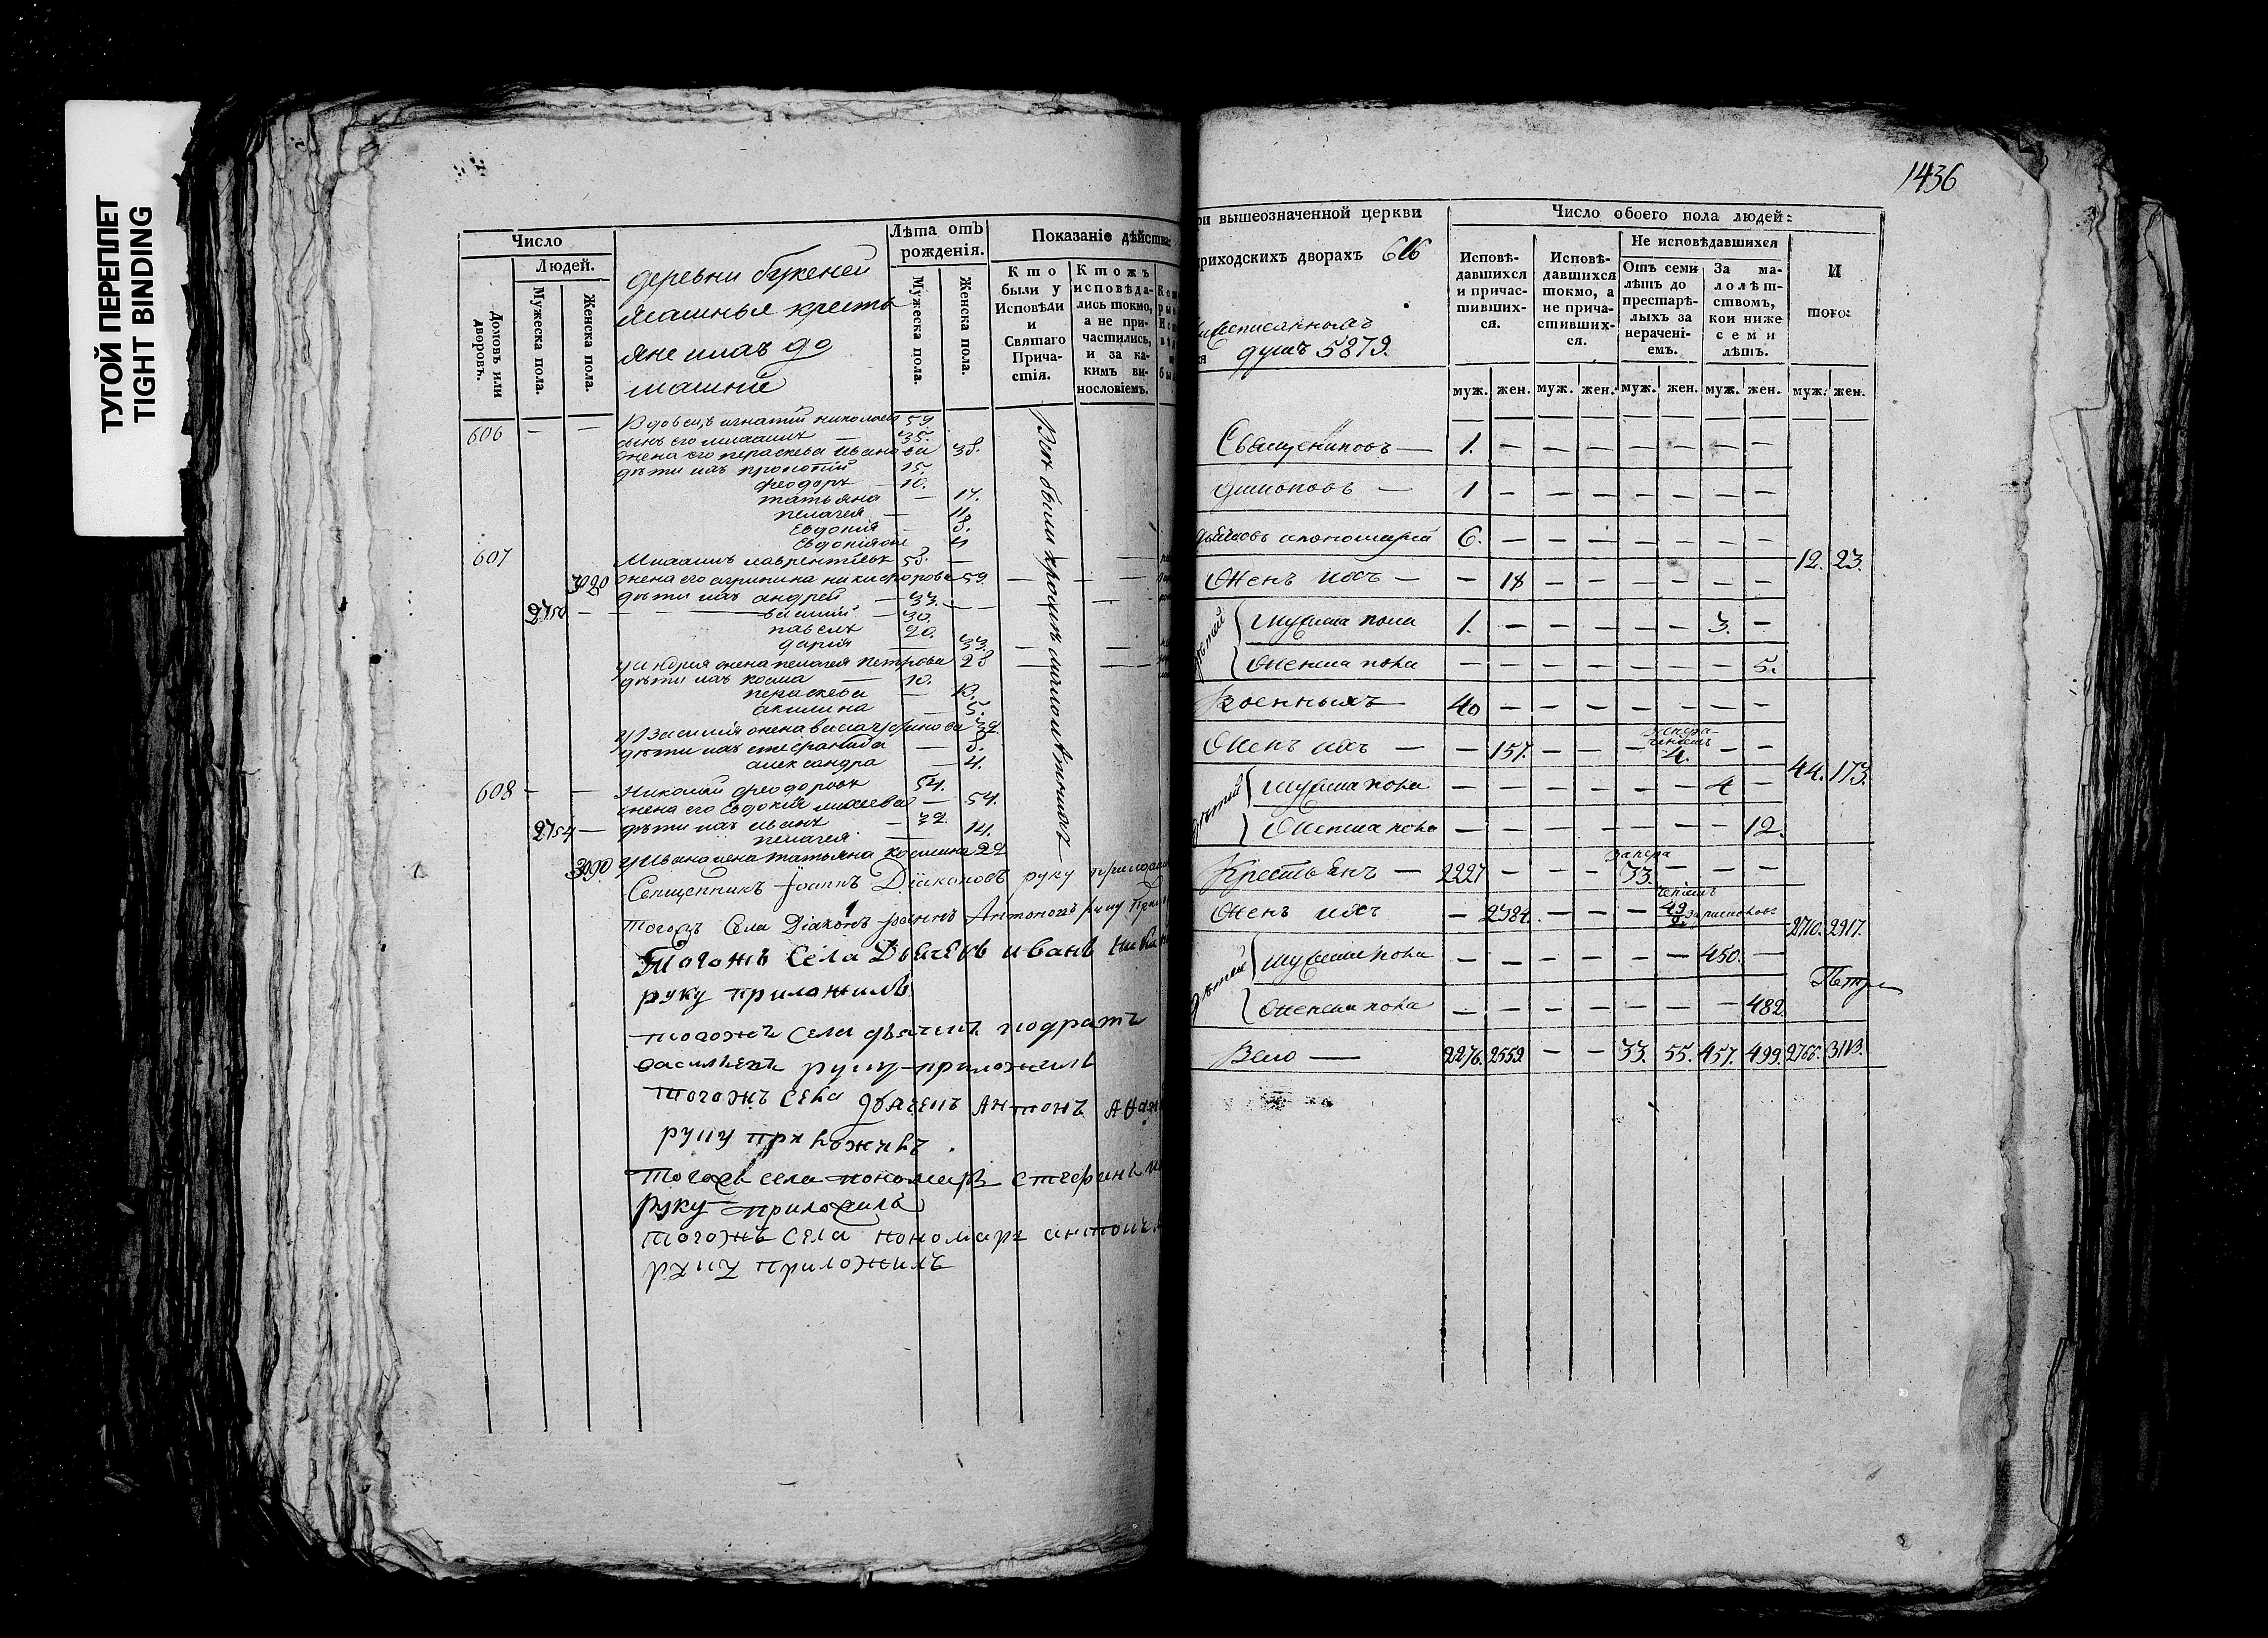 ТУГОЙ ПЕРЕПЛЕТ
TIGHT BINDING
Число
Людей.
Домовъ или дворовъ.
Мужеска пола.
Женска пола.
деревни
ясашныя кресть
яне
Лѣта отъ рожденія.
Мужеска пола.
Женска пола.
Показаніе дѣйства:
Кто были у Исповѣди и Святаго Причастія.
Ктожъ исповѣдались токмо, а не причастились, и за какимъ винословіемъ.
606 — — Вдовецъ игнатий николаевъ 59.
сынъ его — 35.
жена его параскева иванова 38.
дѣти ихъ 15.
феодоръ — 10.
татьяна — 17.
пелагея — 11
Евдокия — 8.
Евдокия 4
607 лаврентьевъ 58. —
жена его агрипина никифорова 59.
дѣти ихъ андрей — 33.
— 30.
павелъ 20.
дария 33.
у андрея жена пелагея петрова 28
дѣти ихъ козма — 10.
параскева — 13.
акилина — 5.
у василия жена 32.
дѣти ихъ стефанида — 8.
александра — 4.
608 — — Николай феодоровъ 54.
жена его Евдокия — 54.
2754 — дѣти ихъ иванъ — 32.
пелагея 14.
3090 у ивана жена татьяна козмина 22
Всѣ были кромѣ малолѣтныхъ
Священникъ Іоаннъ Діаконовъ руку приложилъ
тогожъ Села Діаконъ Іоаннъ Антоновъ руку
Тогожъ Села Дьячекъ иванъ
руку приложилъ
тогожъ села дьячекъ кодратъ
васильевъ руку приложилъ
тогожъ села дьячекъ Антонъ
руку приложилъ.
тогожъ села пономарь стефанъ
руку приложилъ
тогожъ села пономарь антонъ
руку приложилъ
1436
ри вышеозначенной церкви
приходскихъ дворахъ 616
душъ 5879.
Число обоего пола людей:
Исповѣдавшихся и причастившихся.
Исповѣдавшихся токмо, а не причастившихся.
Не исповѣдавшихся
Отъ семи лѣтъ до престарѣлыхъ за нерачеціемъ.
За малолѣтствомъ, кои ниже семи лѣтъ.
И того:
муж. жен. муж. жен. муж. жен. муж. жен. муж. жен.
Священниковъ — 1. — — — — — — —
диаконовъ — 1 — — — — — — —
дьячковъ и пономарей 6. — — — — — — —
12. 23.
Женъ ихъ — — 18 — — — — — —
дѣтей
мужеска пола 1. — — — — — 3. —
женска пола — — — — — — — 5.
Военныхъ 40 — — — — — — —
Женъ ихъ — — 157. — — — 4. — —
44. 173.
дѣтей
мужеска пола — — — — — — 4 —
женска пола — — — — — — — 12.
Крестьянъ — 2227 — — — 33. — — —
Женъ ихъ — 2384. — — — 49 — —
2710. 2917.
дѣтей
мужеска пола — — — — — — 450. —
женска пола — — — — — — — 482
Всего — 2276. 2559. — — 33. 55. 457. 499. 2766. 3113.